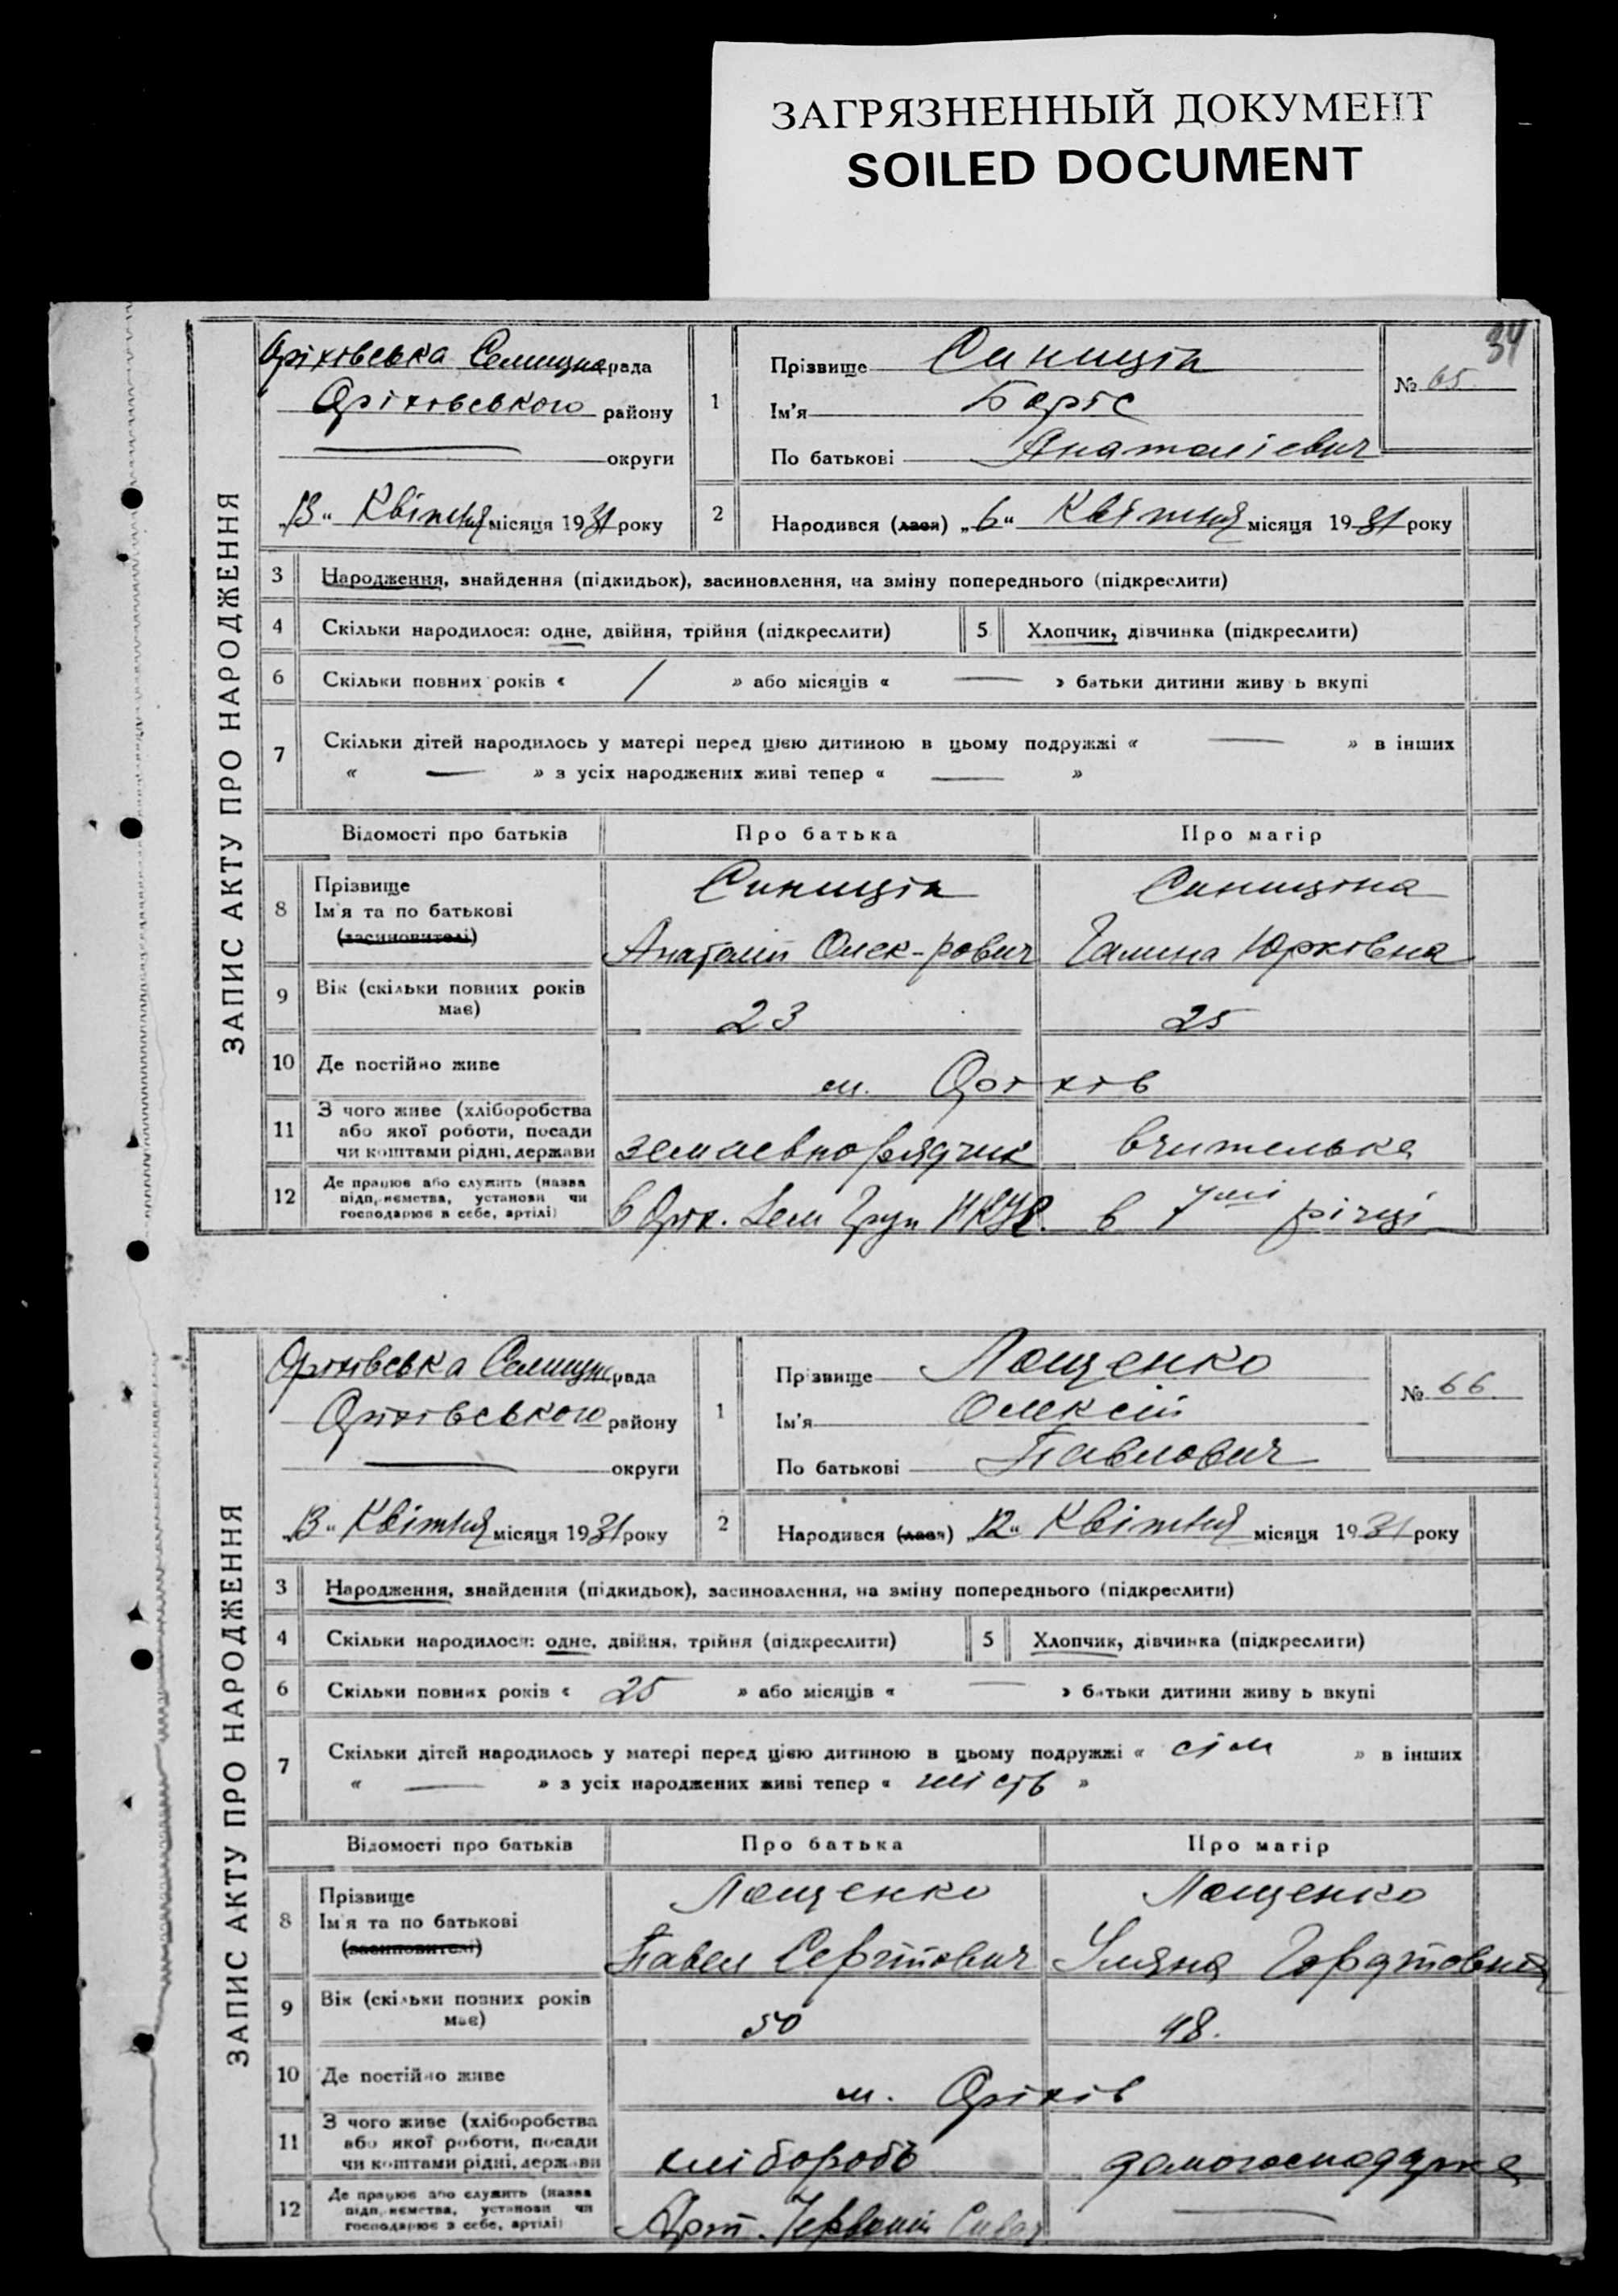 ЗАГРЯЗНЕННЫЙ ДОКУМЕНТ
SOILED DOCUMENT
34
ЗАПИС АКТУ ПРО НАРОДЖЕННЯ
Оріхівська Селищна рада
Оріхівського району
округи
„13“ Квітня місяця 1931 року
1
Прізвище Синицін
Ім'я Боріс
По батькові Анатолієвич
№ 65
2 Народився (лася) „6“ Квітня місяця 1931 року
3 Народження, знайдення (підкидьок), засиновлення, на зміну попереднього (підкреслити)
4 Скільки народилося: одне, двійня, трійня (підкреслити) 5 Хлопчик, дівчинка (підкреслити)
6 Скільки повних років « / » або місяців « — » батьки дитини живу ь вкупі
7 Скільки дітей народилось у матері перед цією дитиною в цьому подружжі « — » в інших
« — » з усіх народжених живі тепер « — »
Відомості про батьків Про батька Про матір
8 Прізвище Синицін Синиціна
Ім'я та по батькові
(засиновителі) Анатолій Олек-рович Галина Юрківна
9 Вік (скільки повних років
має) 23 25
10 Де постійно живе м. Оріхів
11 З чого живе (хліборобства
або якої роботи, посади
чи коштами рідні, держави землевпорядчик вчителька
12 Де працює або служить (назва
підприємства, установи чи
господарює в себе, артілі) в Оріх. Зем в 7 річці
ЗАПИС АКТУ ПРО НАРОДЖЕННЯ
Оріхівська Селищна рада
Оріхівського району
округи
„13“ Квітня місяця 1931 року
1
Прізвище Лященко
Ім'я Олексій
По батькові Павлович
№ 66
2 Народився (лася) „12“ Квітня місяця 1931 року
3 Народження, знайдення (підкидьок), засиновлення, на зміну попереднього (підкреслити)
4 Скільки народилося: одне, двійня, трійня (підкреслити) 5 Хлопчик, дівчинка (підкреслити)
6 Скільки повних років « 25 » або місяців « — » батьки дитини живу ь вкупі
7 Скільки дітей народилось у матері перед цією дитиною в цьому подружжі « сім » в інших
« — » з усіх народжених живі тепер « шість »
Відомості про батьків Про батька Про матір
8 Прізвище Лященко Лященко
Ім'я та по батькові
(засиновителі) Павел Сергійович Уляна
9 Вік (скільки повних років
має) 50 48.
10 Де постійно живе м. Оріхів
11 З чого живе (хліборобства
або якої роботи, посади
чи коштами рідні, держави хлібороб домогосподарка
12 Де працює або служить (назва
підприємства, установи чи
господарює в себе, артілі) Арт. Червоний —